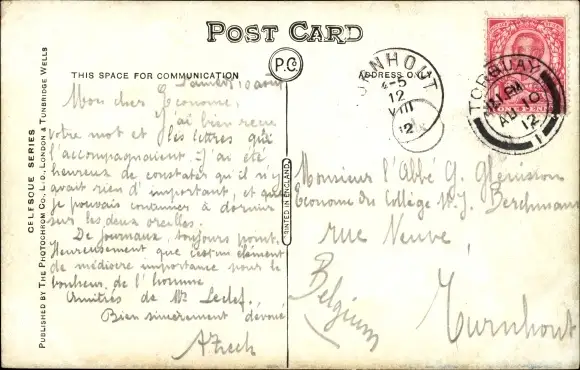 POST CARD
P.Co
THIS SPACE FOR COMMUNICATION
ADDRESS ONLY
CELESQUE SERIES
PUBLISHED BY THE PHOTOCHROM CO., LTD., LONDON & TUNBRIDGE WELLS
PRINTED IN ENGLAND
TURNHOUT
4-5
12
VIII
12
TORQUAY
PM
AU 10
12
1
Samedi 10 août
Mon cher Econome,
J'ai bien reçu
votre mot et les lettres qui
l'accompagnaient. J'ai été
heureux de constater qu'il n'y
avait rien d'important, et que
je pouvais continuer à dormir
sur les deux oreilles.
De journaux, toujours point.
Heureusement que c'est un élément
de médiocre importance pour le
bonheur de l'homme.
Amitiés de Mr Leclef.
Bien sincèrement dévoué
Monsieur l'Abbé G. Glénisson
Econome du Collège St. J. Berchmans
rue Neuve,
Turnhout
Belgium